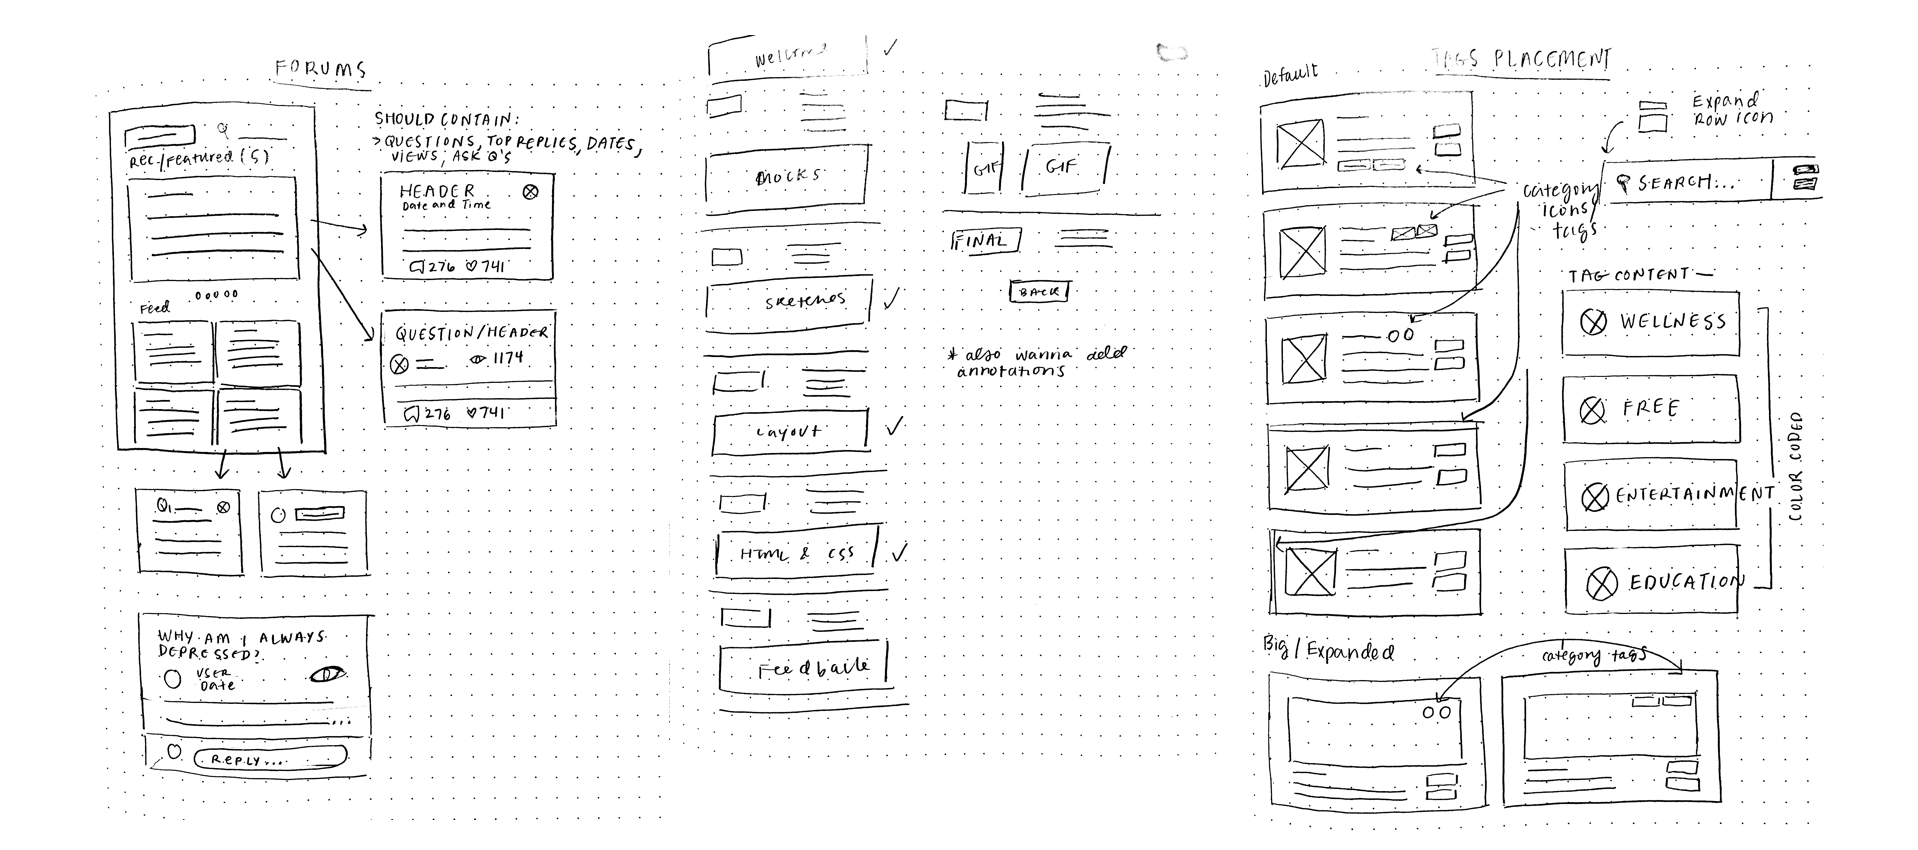 FORUMS
Rec./Featured (5)
Feed
SHOULD CONTAIN:
> QUESTIONS, TOP REPLIES, DATES,
VIEWS, ASK Q'S
HEADER
Date and Time
276 741
QUESTION/HEADER
1174
276 741
Q1
WHY AM I ALWAYS
DEPRESSED?
USER
Date
...
REPLY...
Welcome
Mocks
Sketches
Layout
HTML & CSS
GIF
GIF
FINAL
BACK
* also wanna add
annotations
TAGS PLACEMENT
Default
Expand
Row icon
SEARCH...
category
icons/
tags
TAG CONTENT—
WELLNESS
FREE
ENTERTAINMENT
EDUCATION
COLOR CODED
Big/Expanded
category tags